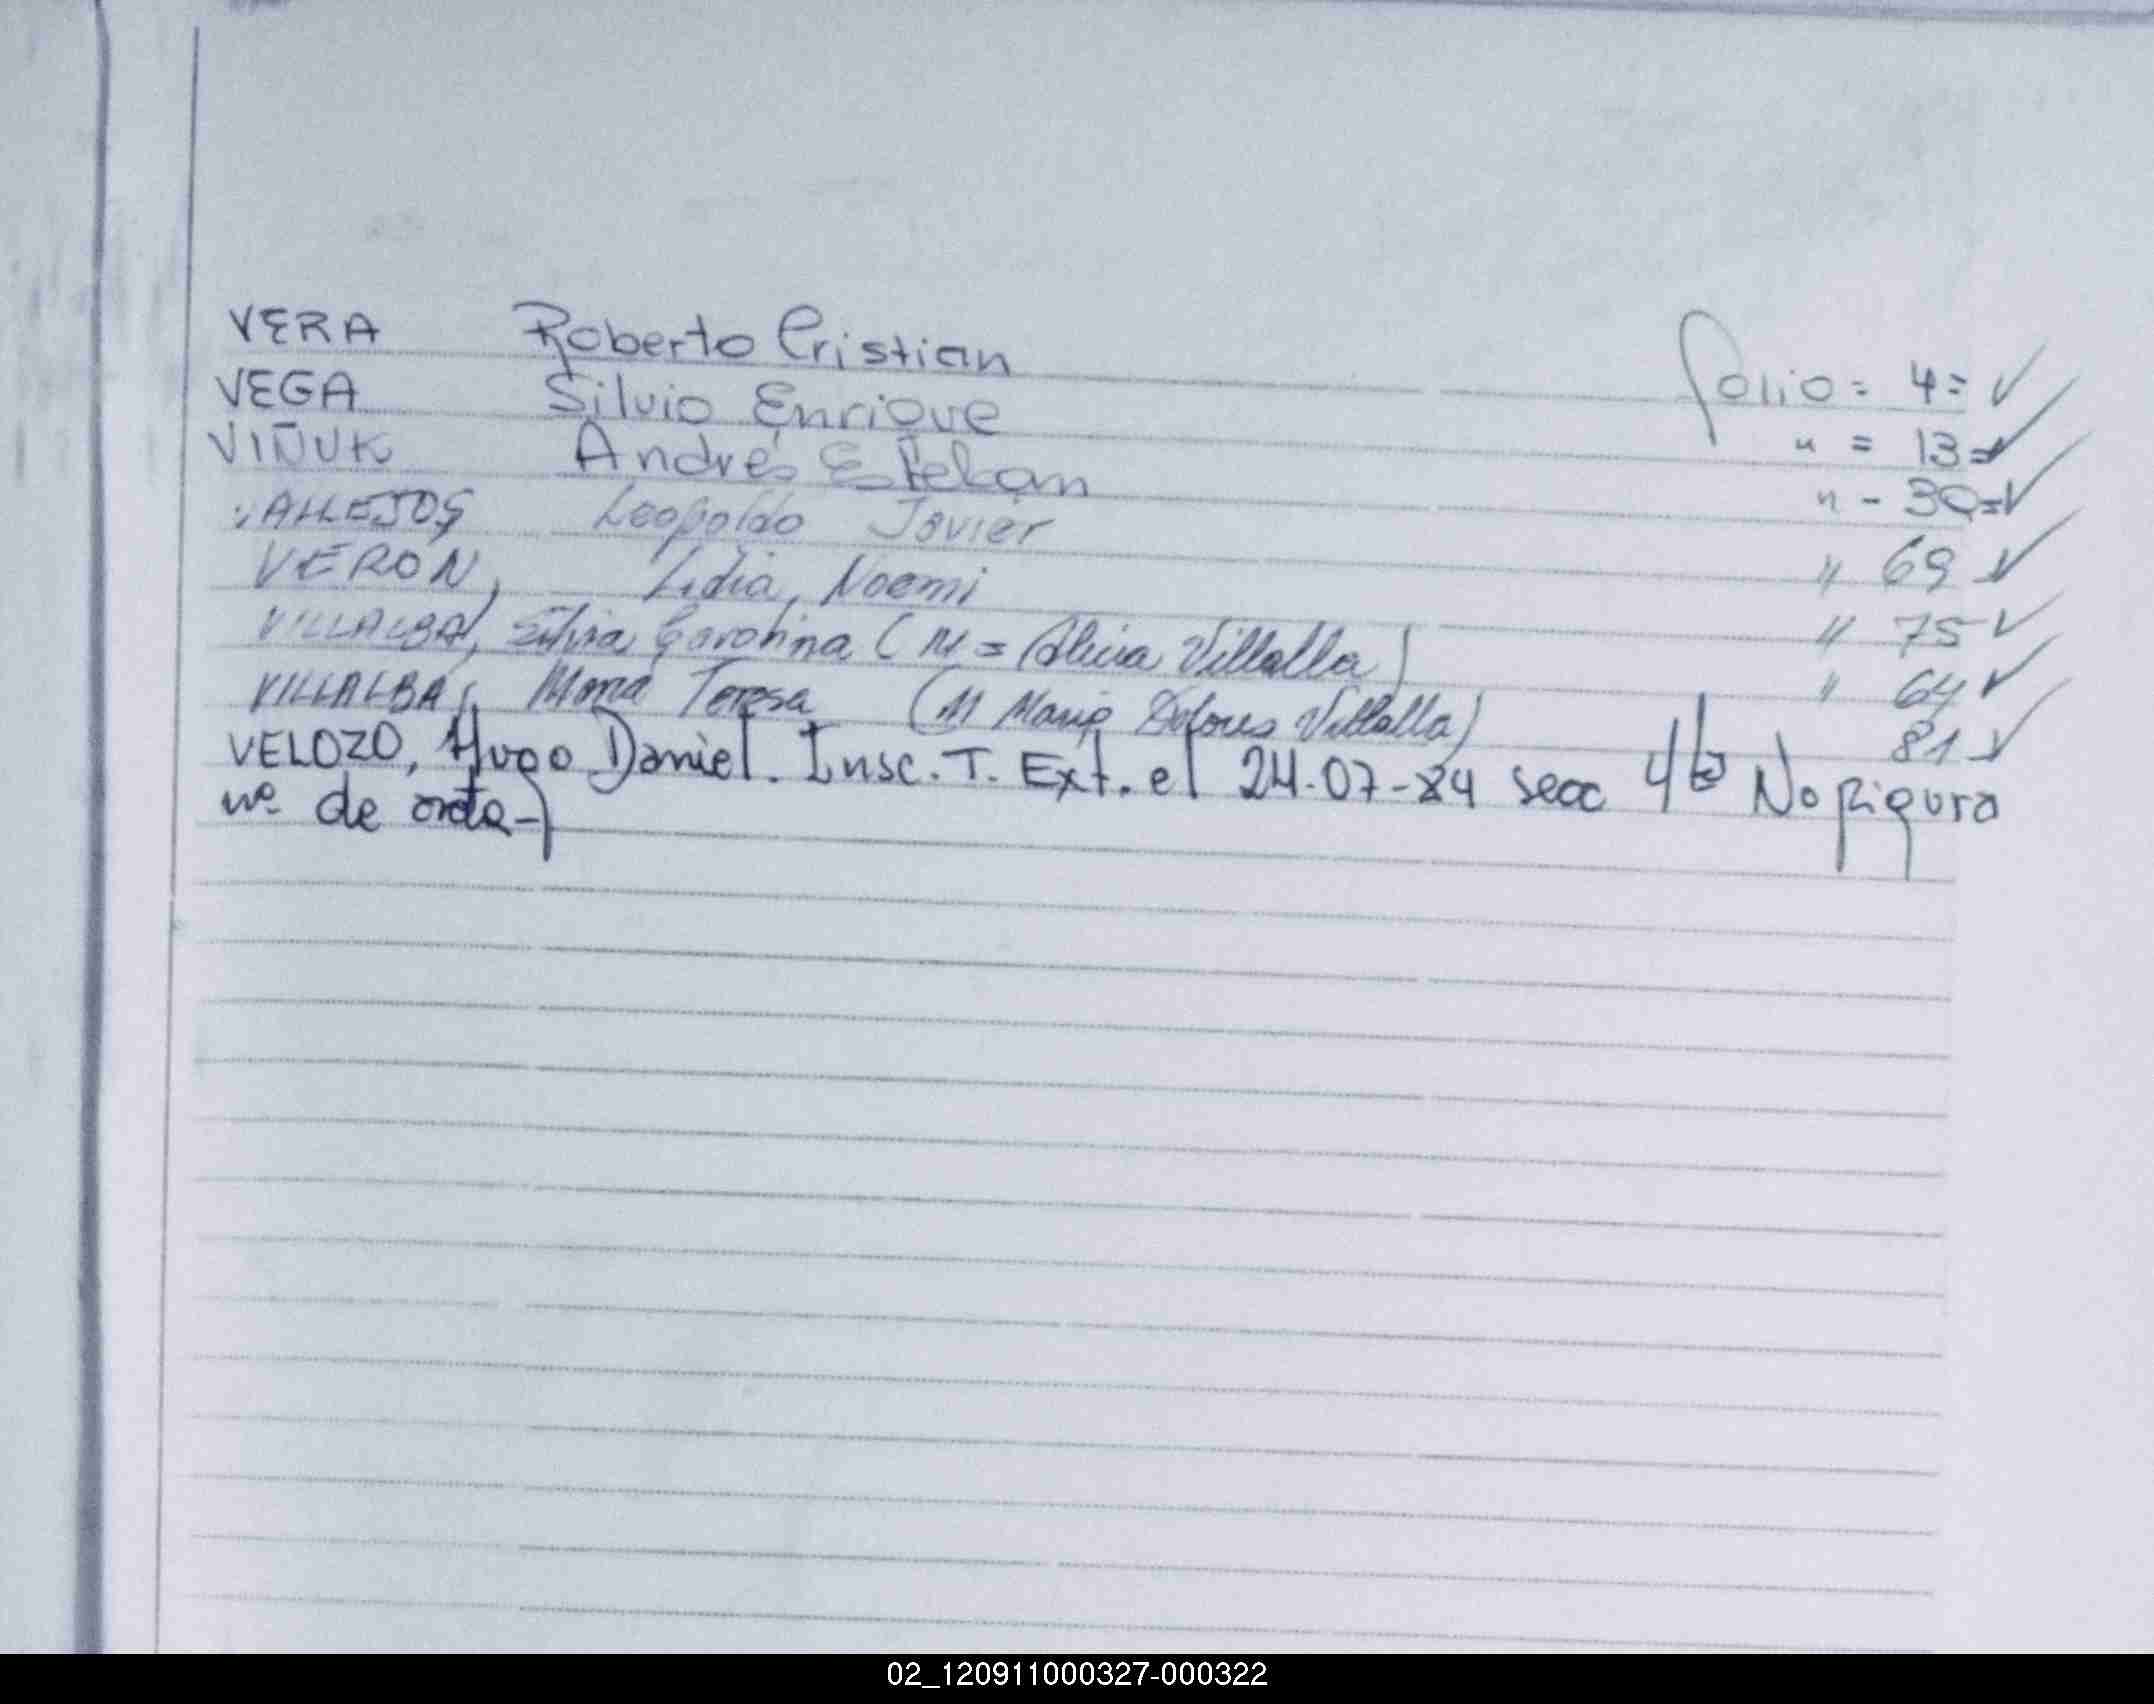 VERA Roberto Cristian folio = 4 = ✓
VEGA Silvio Enrique " = 13 = ✓
VIÑUK Andrés Esteban " - 30 = ✓
VALLEJOS Leopoldo Javier " 69 ✓
VERON, Lidia, Noemi " 75 ✓
VILLALBA, Silvia Carolina ( M = Alicia Villalba ) " 64 ✓
VILLALBA, Maria Teresa ( M Maria Dolores Villalba ) 81 ✓
VELOZO, Hugo Daniel. Insc. T. Ext. el 24-07-84 secc 4ta No figura
nº de acta-